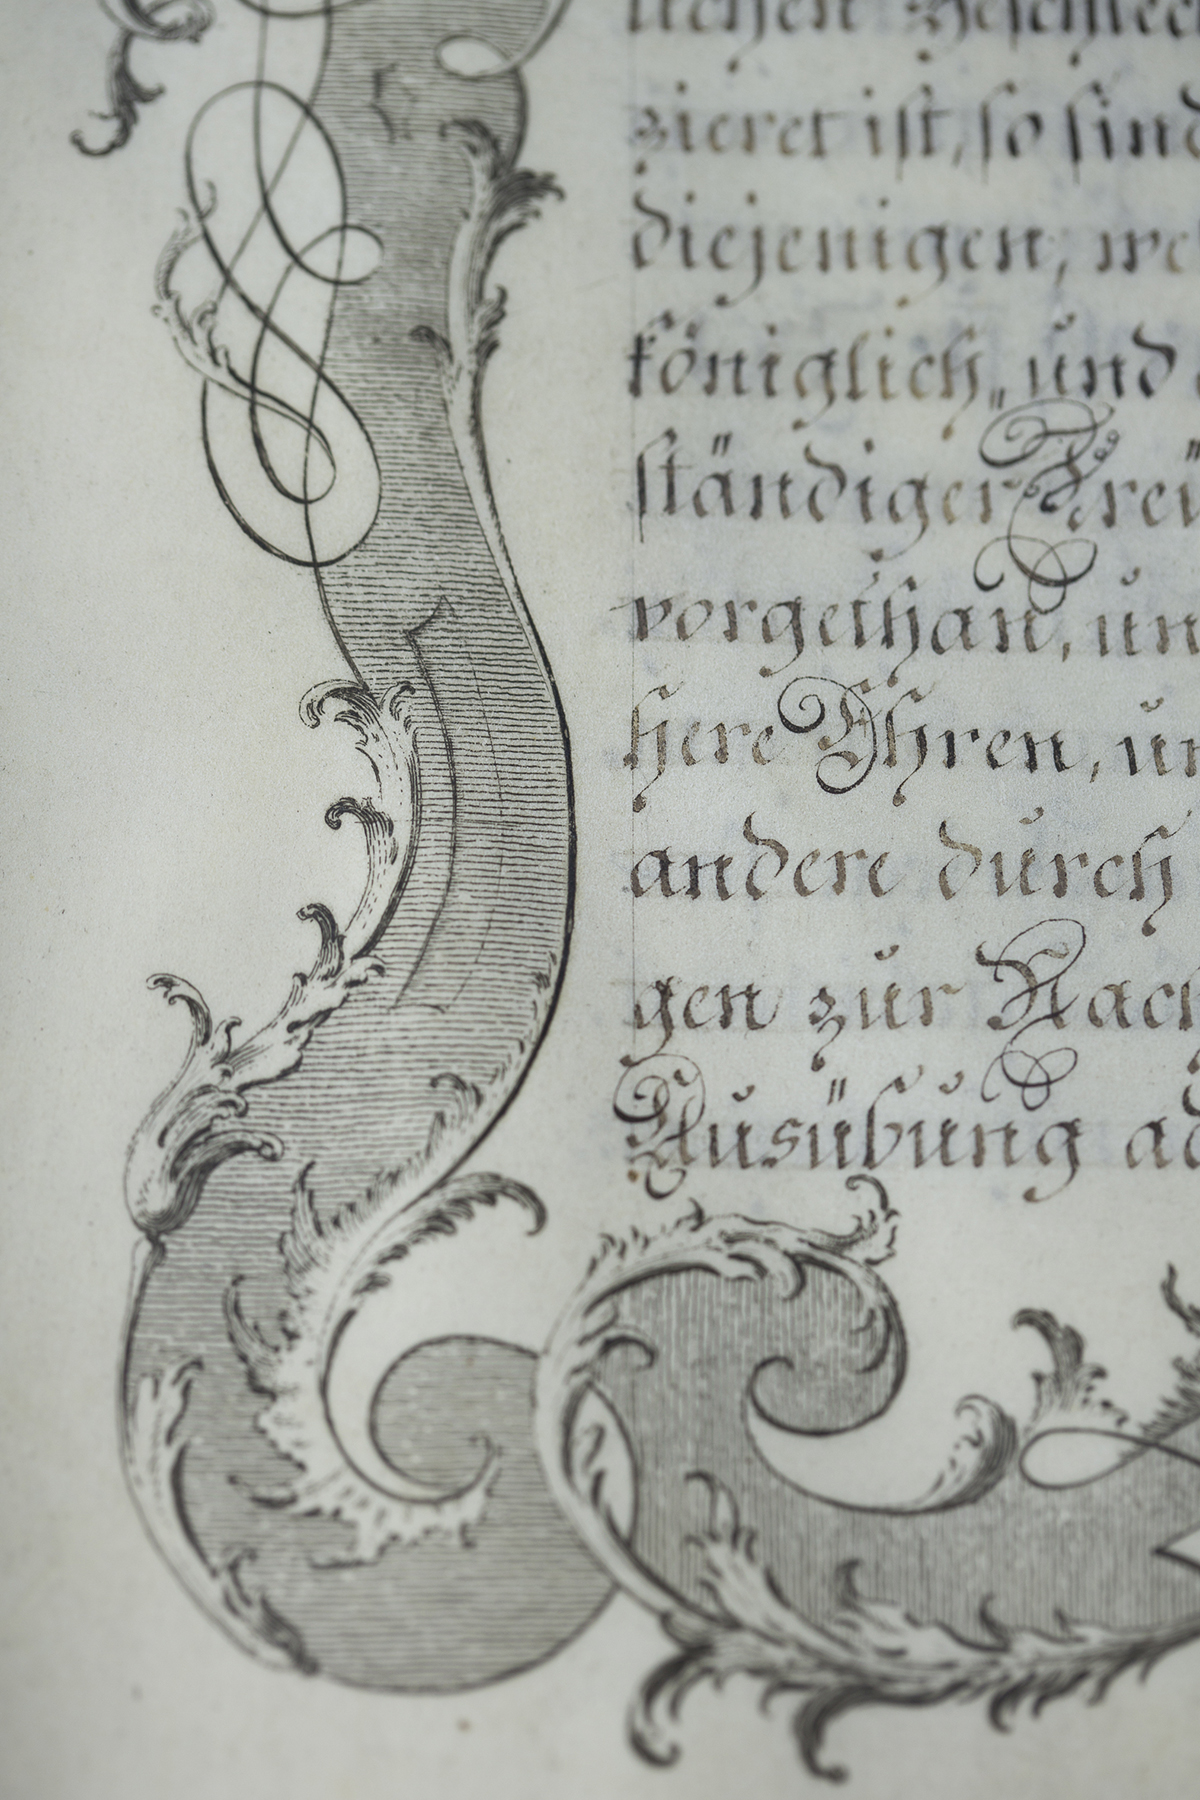 lichen Geschlec
zieret ist, so sind
diejenigen, wel
königlich„ und
ständiger Treü
vorgethan, un
here Ehren, un
andere durch
gen zur Nach
Ausübung ad